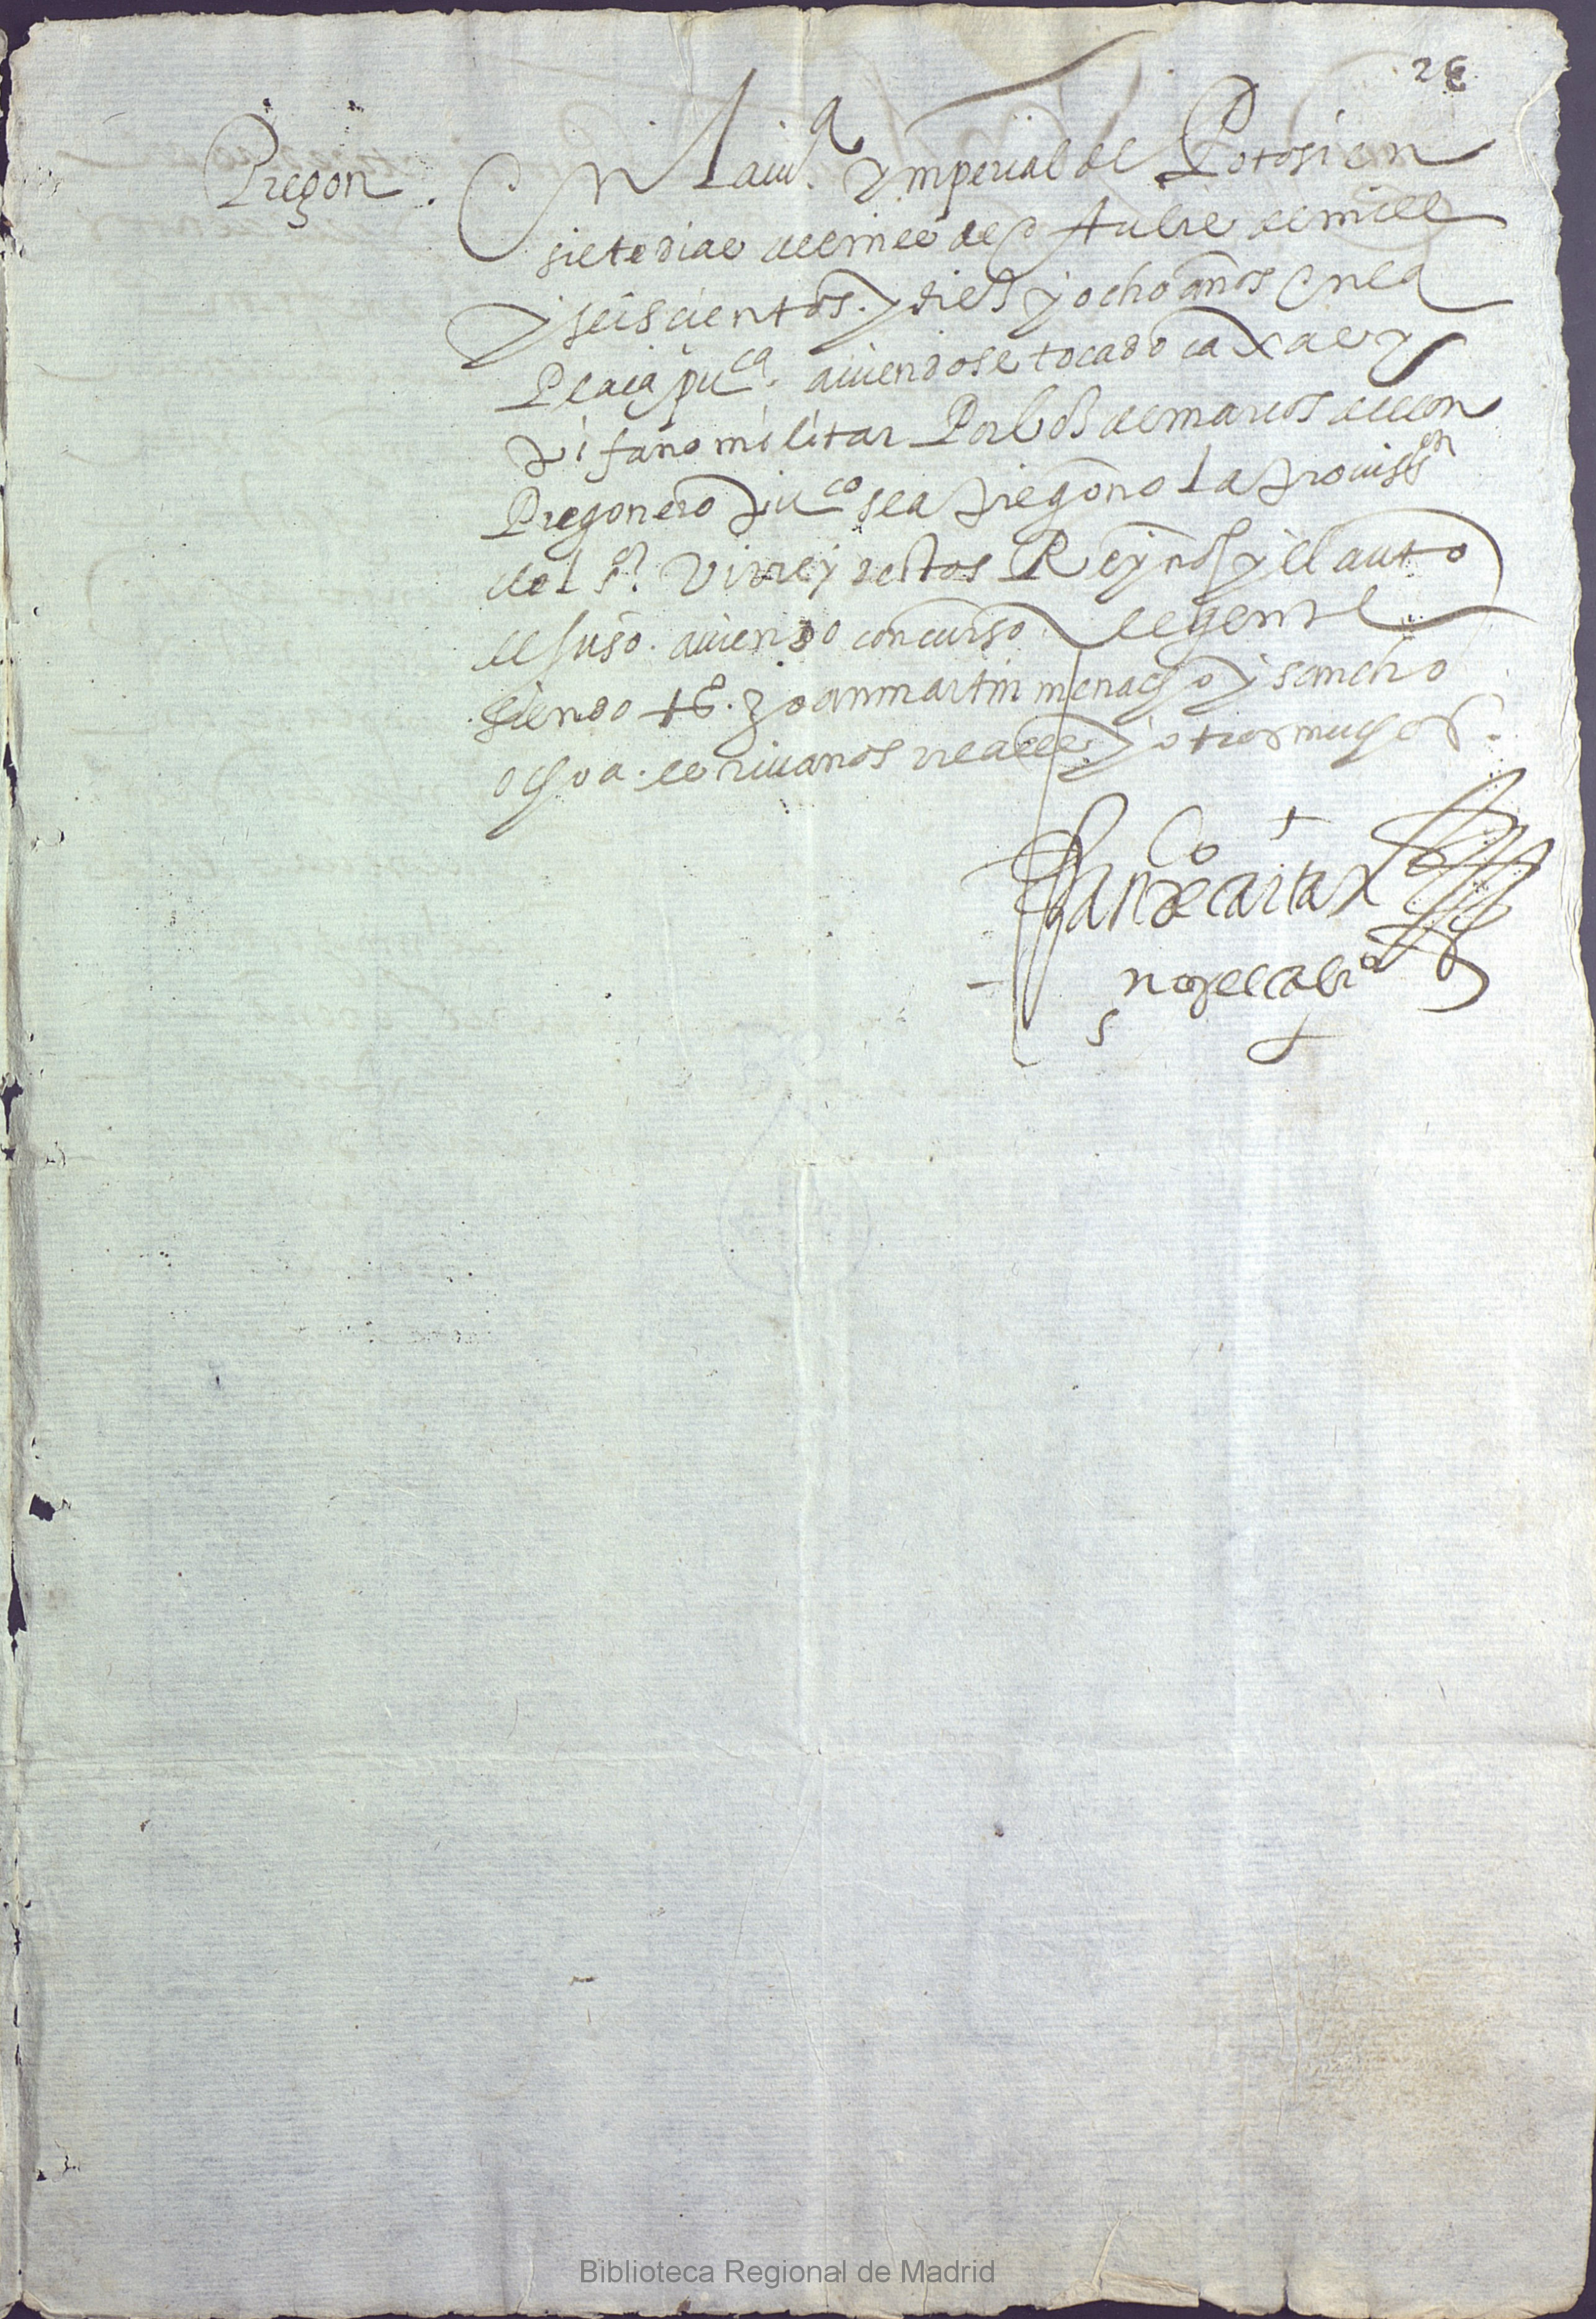 26
Pregon.
En la ciud.ª Ymperial de Potosi en
siete dias del mes de Octubre de mill
y seis cientos y dies y ocho años en la
Plaça puca. aviendose tocado caxas y
pifano militar Por bos de marcos de leon
Pregonero puco sea pregono la provission
del sor Virrey destos Reynos y el auto
de suso. aviendo concurso de gente
siendo to. Joan martin menacho y sancho
ochoa. escrivanos reales y otros muchos.
Co
Juan de
no de cabdo
Biblioteca Regional de Madrid